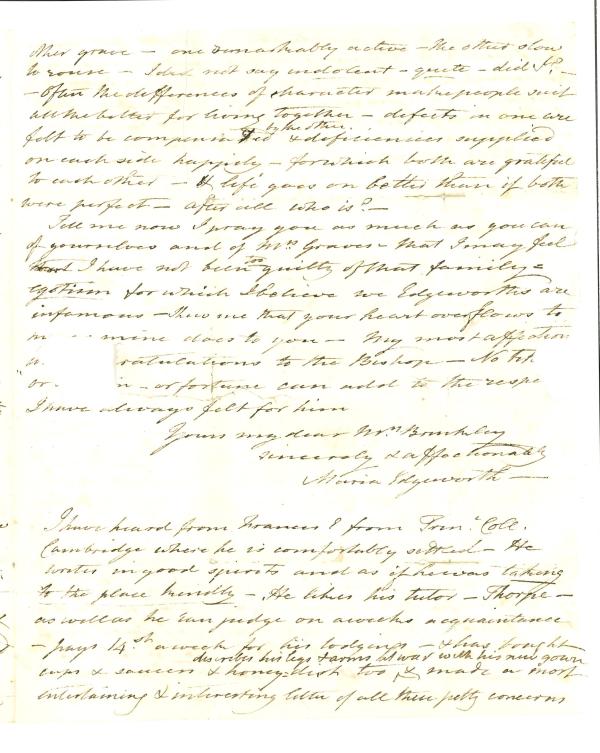 other grave – one remarkably active – the other slow
to rouse – I did not say indolent – quite – did I? –
– Often the differences of character make people suit
all the better for living together – defects in one are
by the other
felt to be compensated & deficiencies supplied
on each side happily – for which both are grateful
to each other – & life goes on better than if both
were perfect – after all who is? –
Tell me now I pray you as much as you can
of yourselves and of Mrs Graves – that I may feel
too
I have not been guilty of that family =
egotism for which I believe we Edgeworths are
infamous – Shew me that your heart overflows to
m mine does to you – My most affection
ratulations to the Bishop – No
or n – or fortune can add to the respe
I have always felt for him
Yours my dear Mrs Brinkley
sincerely & affectionately
Maria Edgeworth –
I have heard from Francis E from Trin. Coll.
Cambridge where he is comfortably settled – He
writes in good spirits and as if he was taking
to the place kindly – He likes his tutor – Thorpe –
as well as he can judge on a weeks acquaintance
– pays 14sh a week for his lodgings – & has bought
describes his legs & arms at war with his new gown
cups & saucers & honey-dish too & made a most
entertaining & interesting letter of all these petty concerns